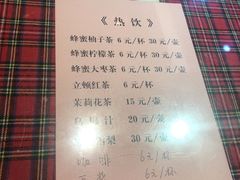 《热饮》
蜂蜜柚子茶 6元/杯 30元/壶
蜂蜜柠檬茶 6元/杯 30元/壶
蜂蜜大枣茶 6元/杯 30元/壶
立顿红茶 6元/杯
茉莉花茶 15元/壶
汁 20元/壶
梨 30元/壶
咖啡 6元/杯
6元/杯